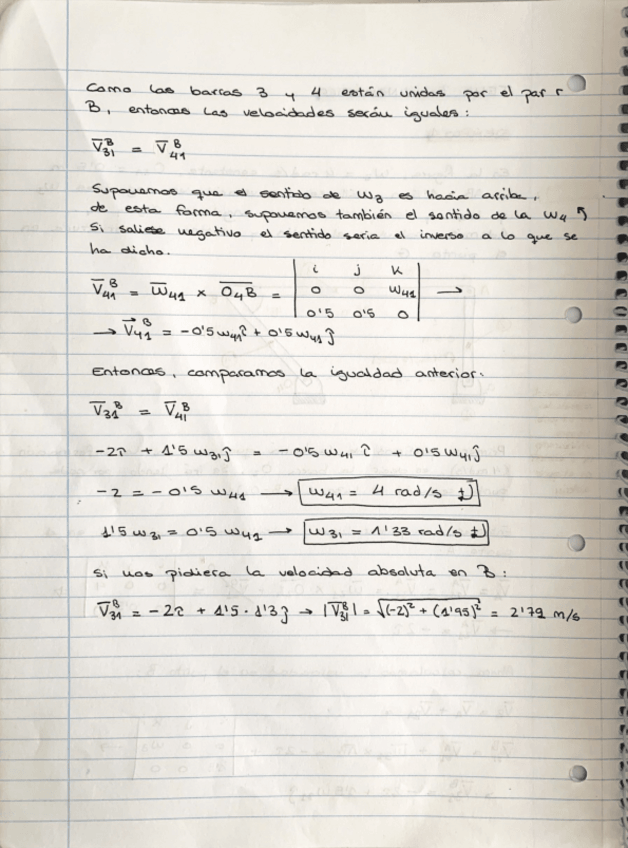 Como las barras 3 y 4 están unidas por el par r
B, entonces las velocidades serán iguales:
V̅₃₁ᴮ = V̅₄₁ᴮ
Suponemos que el sentido de ω₃ es hacia arriba,
de esta forma, suponemos también el sentido de la ω₄ ↰
Si saliese negativo el sentido seria el inverso a lo que se
ha dicho.
V̅₄₁ᴮ = ω̅₄₁ × O̅₄B̅ = | i j k |
| 0 0 ω₄₁ | →
| 0'5 0'5 0 |
→ V⃗₄₁ᴮ = -0'5 ω₄₁ î + 0'5 ω₄₁ ĵ
Entonces, comparamos la igualdad anterior.
V̅₃₁ᴮ = V̅₄₁ᴮ
-2î + 1'5 ω₃₁ ĵ = -0'5 ω₄₁ î + 0'5 ω₄₁ ĵ
-2 = -0'5 ω₄₁ → ω₄₁ = 4 rad/s
1'5 ω₃₁ = 0'5 ω₄₁ → ω₃₁ = 1'33 rad/s
Si nos pidiera la velocidad absoluta en B:
V̅₃₁ᴮ = -2î + 1'5 · 1'3 ĵ → |V̅₃₁ᴮ| = √((-2)² + (1'95)²) = 2'79 m/s